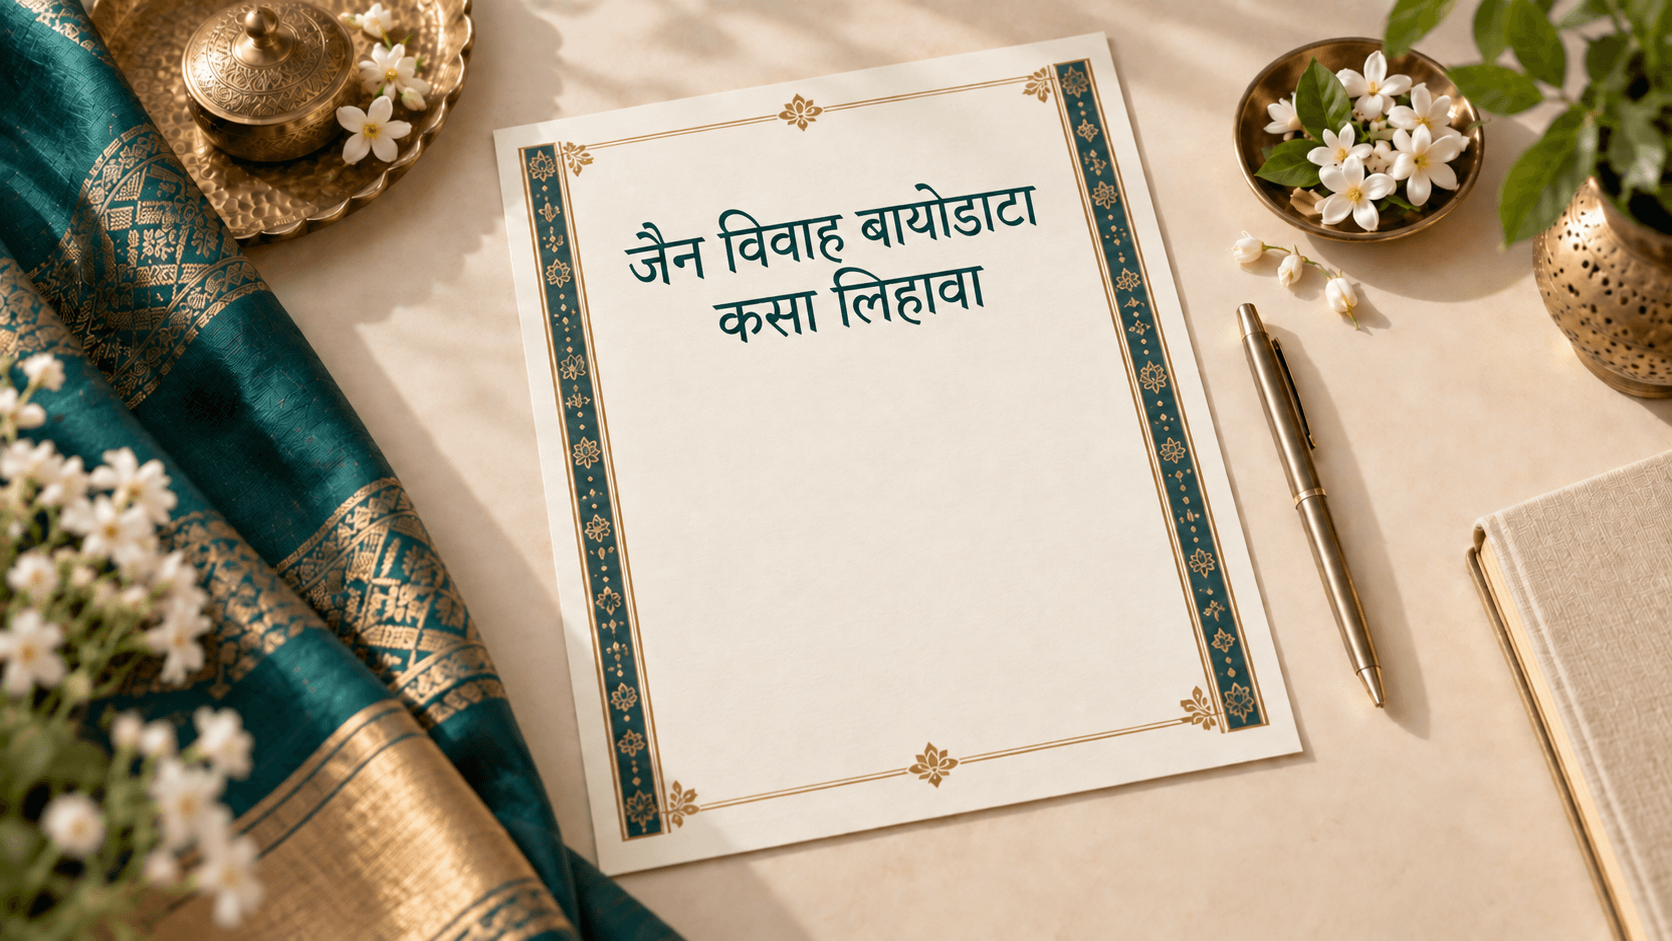 जैन विवाह बायोडाटा
कसा लिहावा